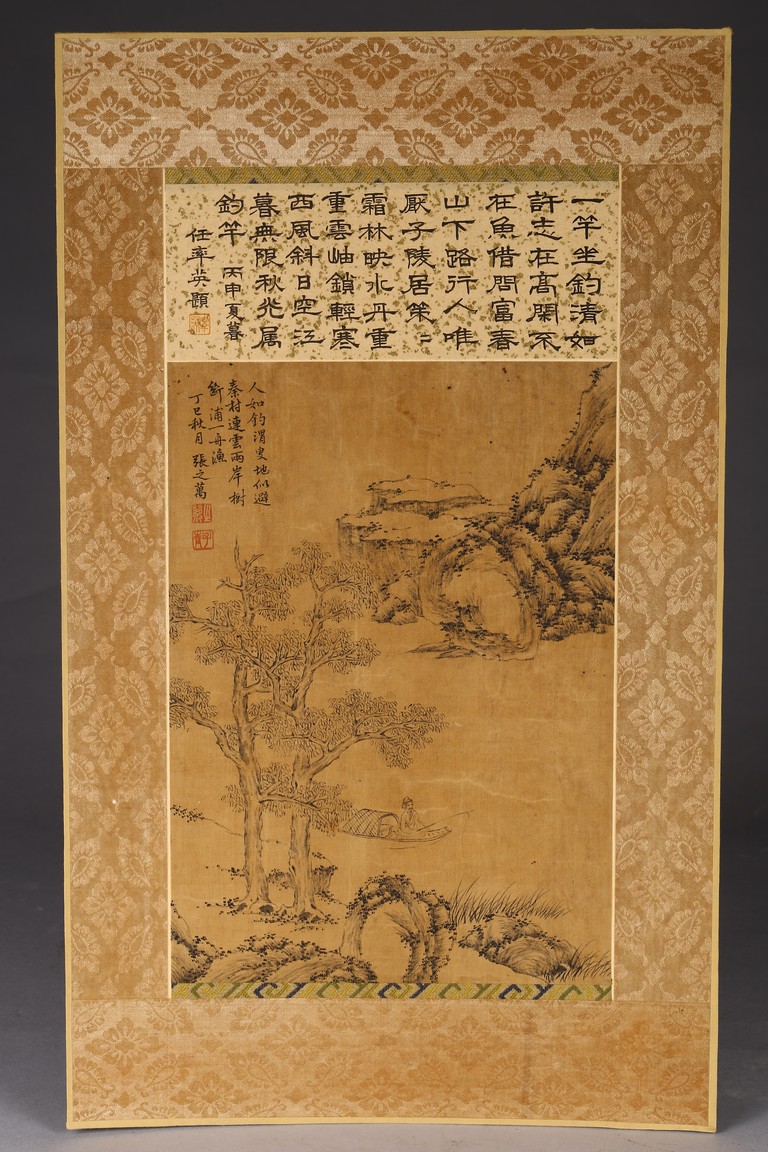 一竿坐釣清如
許志在高閑不
在魚借問富春
山下路行人唯
厭子陵居策〻
霜林映水丹重
重雲岫鎖輕寒
西風斜日空江
暮無限秋光属
釣竿 丙申夏暮
任率英題
人如釣渭叟地似避
秦村連雲兩岸樹
斷浦一舟漁
丁巳秋月 張之萬